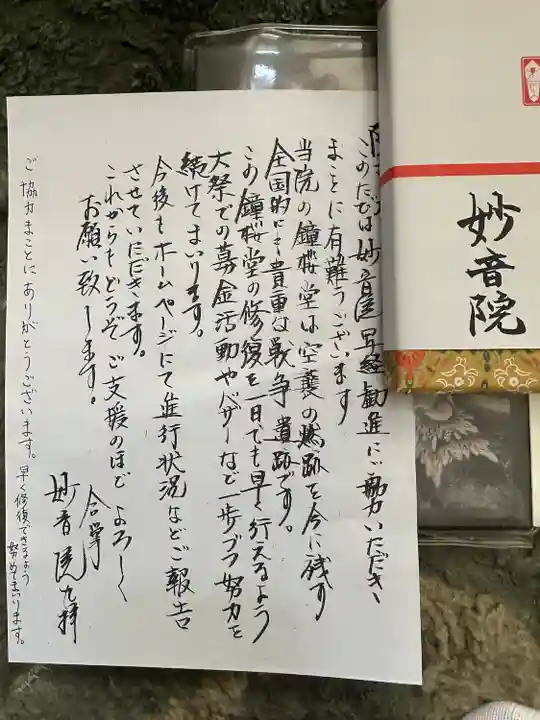 このたびは妙音院写経勧進にご協力いただき
まことに有難うございます
当院の鐘桜堂は空襲の燃跡を今に残す
全国的にも貴重な戦争遺跡です。
この鐘桜堂の修復を一日でも早く行えるよう
大祭での募金活動やバザーなど一歩づつ努力を
続けてまいります。
今後もホームページにて進行状況などご報告
させていただきます。
これからもどうぞご支援のほどよろしく
お願い致します。
合掌
妙音院九拝
ご協力まことにありがとうございます。早く修復できるよう
努めてまいります。
妙音院